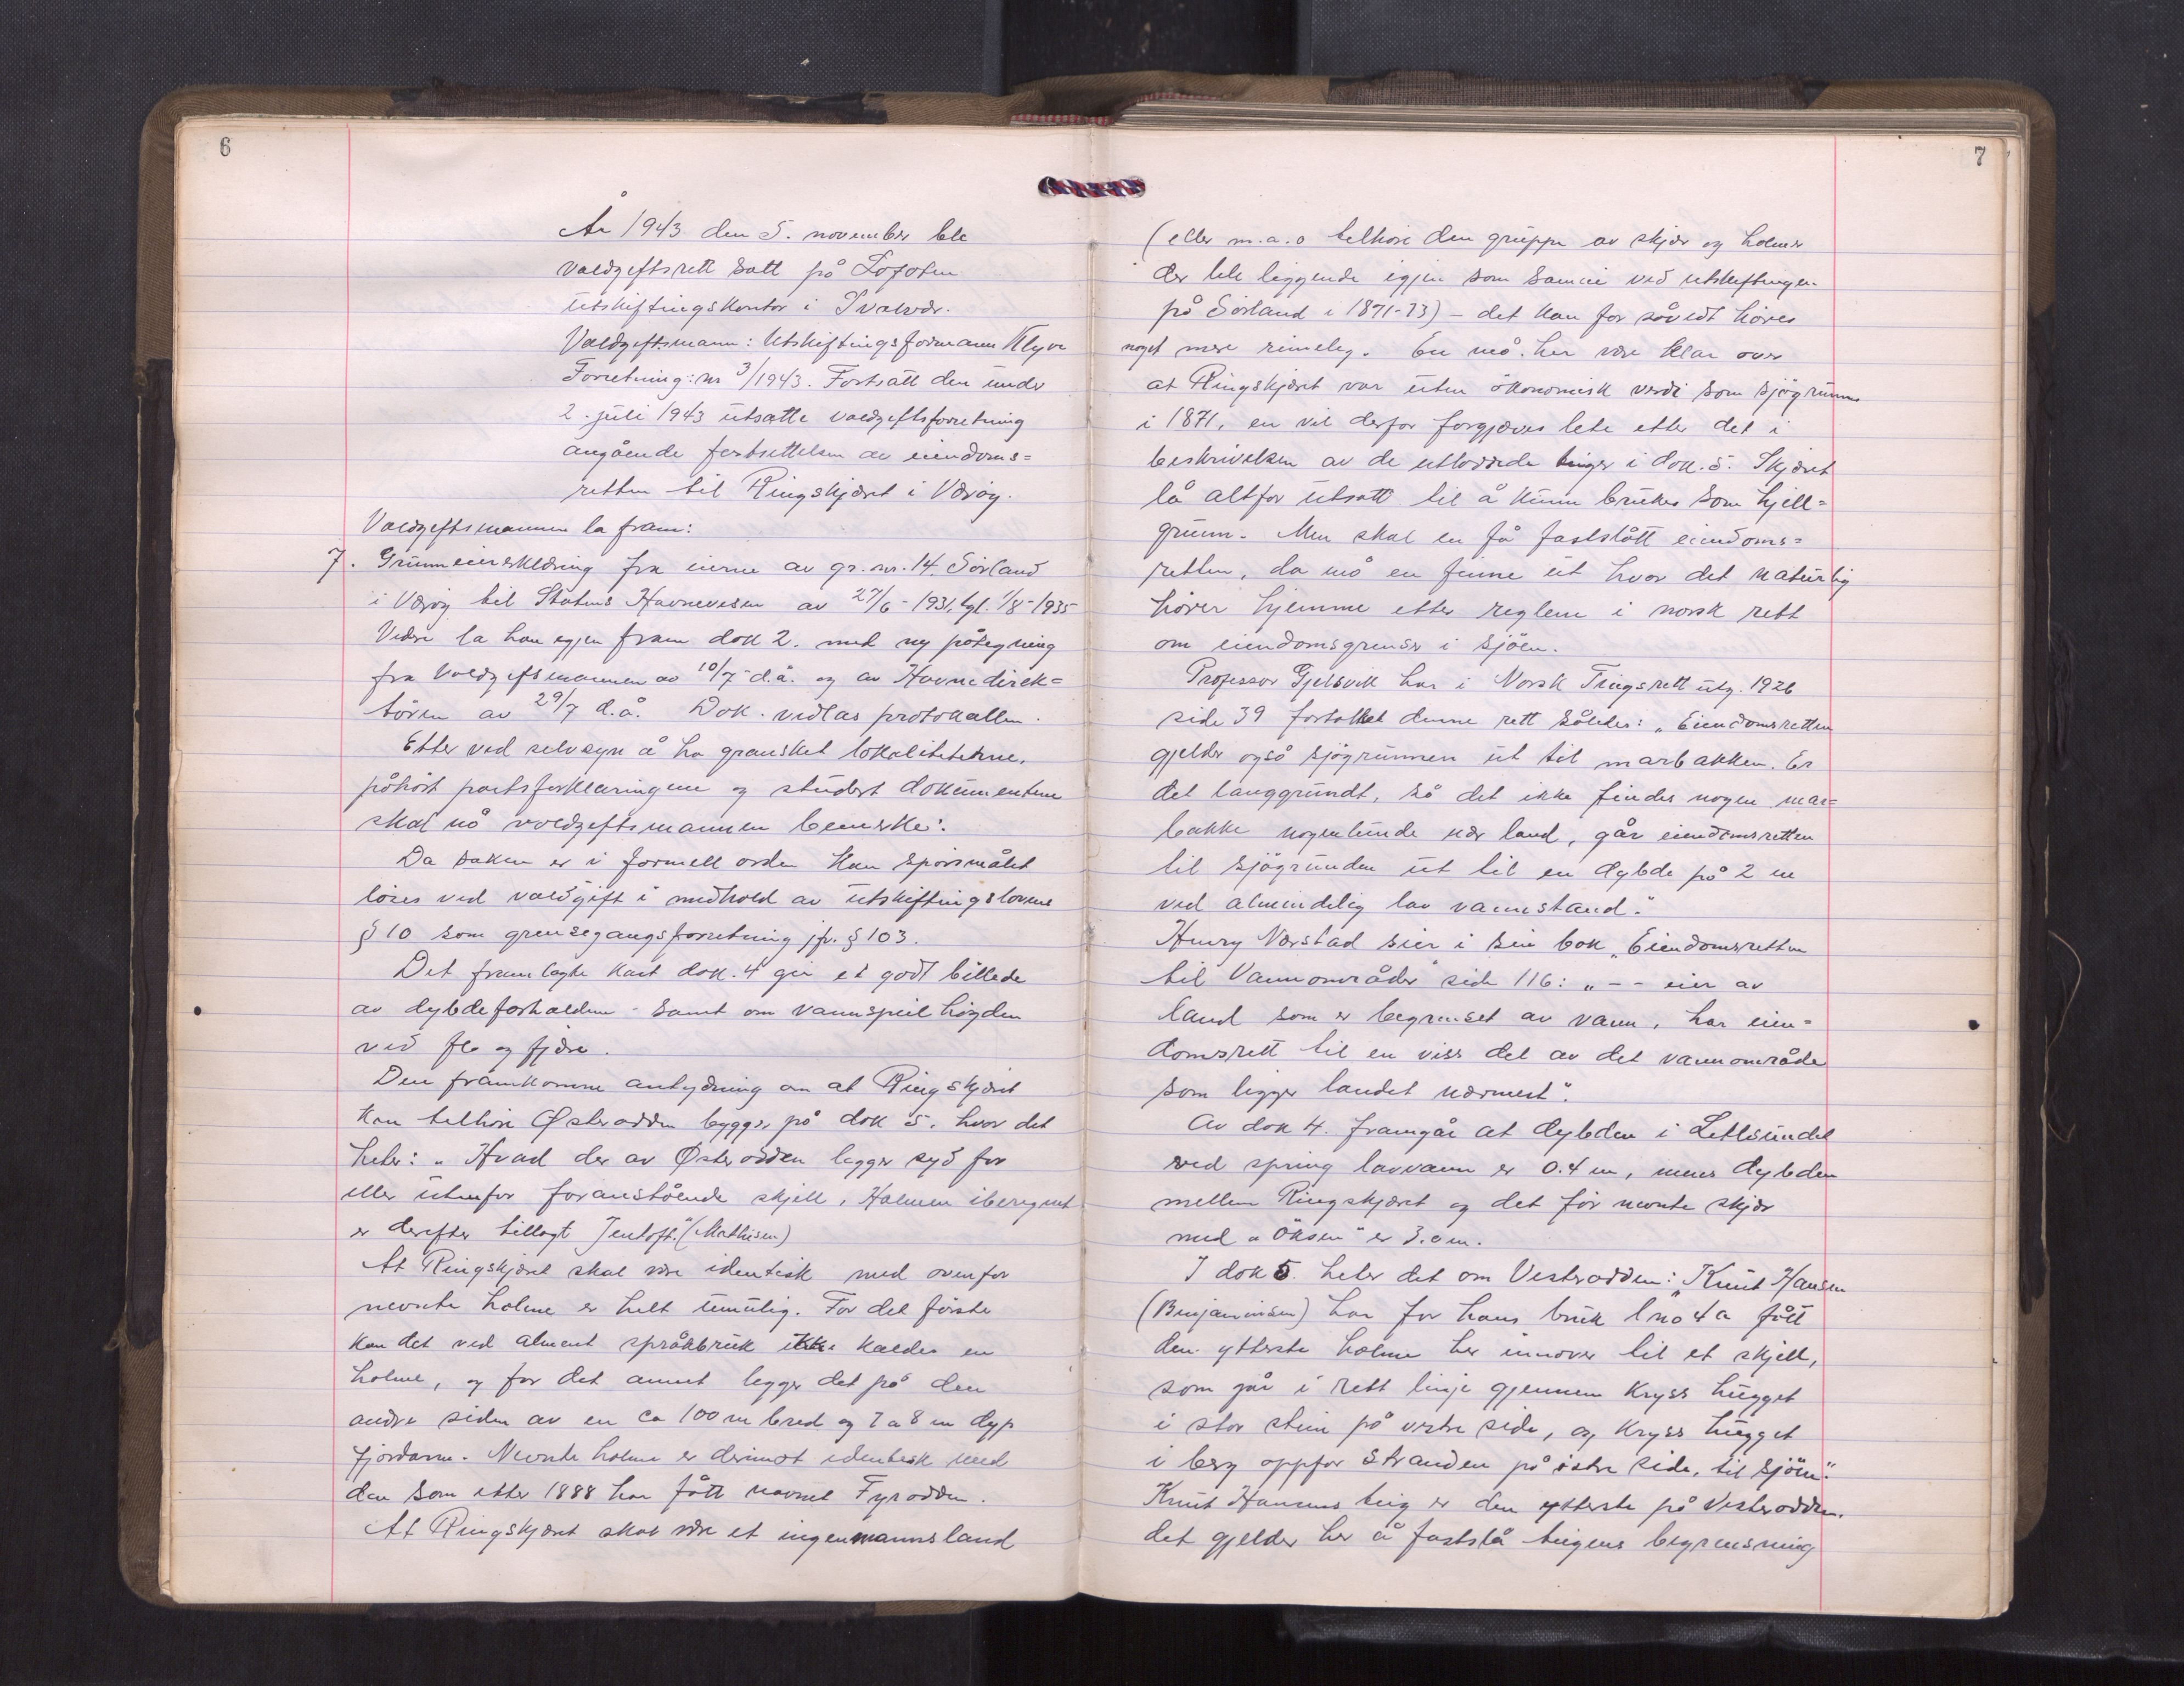 6
År 1943 den 5. november ble
voldgiftsrett satt på Lofoten
utskiftingskontor i Svolvær.
Voldgiftsmann: Utskiftingsformann Klyve
Forretning: nr 3/1943. Fortsatt den under
2. juli 1943 utsatte voldgiftsforretning
angående fastsettelsen av eiendoms=
retten til Ringskjæret i Værøy.
Voldgiftsmannen la fram:
7. Grunneiererklæring fra eierne av gr. nr. 14. Sørland
i Værøy til Statens Havnevesen av 27/6-1931, tgl. 1/8-1935
Videre la han igjen fram dok 2. med ny påtegning
fra voldgiftsmannen av 10/7 d.å. og av Havnedirek=
tøren av 29/7 d.å. Dok. vedlas protokollen.
Etter ved selvsyn å ha gransket lokalitetene,
påhørt partsforklaringene og studert dokumentene
skal nå voldgiftsmannen bemerke:
Da saken er i formell orden kan spørsmålet
løses ved voldgift i medhold av utskiftingslovens
§ 10 som grensegangsforretning jfr. § 103.
Det framlagte kart dok. 4 gir et godt billede
av dybdeforholdene - samt om vannspeilhøyden
ved flo og fjære.
Den framkomne antydning om at Ringskjæret
kan tilhøre Østerodden bygger på dok 5. hvor det
heter: „Hvad der av Østerodden ligger syd for
eller utenfor foranstående skjell, Holmen iberegnet
er derefter tillagt Jentoft." (Mathisen)
At Ringskjæret skal være identisk med ovenfor
nevnte holme er helt umulig. For det første
kan det ved alment språkbruk ikke kaldes en
holme, og for det annet ligger det på den
andre siden av en ca 100 m bred og 7 a 8 m dyp
fjordarm. Nevnte holme er derimot identisk med
den som etter 1888 har fått navnet Fyrodden.
At Ringskjæret skal være et ingenmannsland
7
(eller m.a.o tilhøre den gruppe av skjær og holmer
der ble liggende igjen som sameie ved utskiftingen
på Sørland i 1871-73) - det kan for såvidt høres
noget mere rimelig. En må her være klar over
at Ringskjæret var uten økonomisk verdi som sjøgrunn
i 1871, en vil derfor forgjæves lete etter det i
beskrivelsen av de utloddede teiger i dok. 5. Skjæret
lå altfor utsatt til å kunne brukes som hjell=
grunn. Men skal en få fastslått eiendoms=
retten, da må en finne ut hvor det naturlig
hører hjemme etter reglene i norsk rett
om eiendomsgrenser i sjøen.
Professor Gjelsvik har i Norsk Tingsrett utg. 1926
side 39 fortolket denne rett således: „Eiendomsretten
gjelder også sjøgrunnen ut til marbakken. Er
det langgrundt, så det ikke findes nogen mar=
bakke nogenlunde nær land, går eiendomsretten
til sjøgrunden ut til en dybde på 2 m
ved almindelig lav vannstand."
Henry Værstad sier i sin bok „Eiendomsretten
til Vannområder" side 116: „ - - eier av
land som er begrenset av vann, har eien=
domsrett til en viss del av det vannområde
som ligger landet nærmest".
Av dok 4. framgår at dybden i Litlsundet
ved spring lavvann er 0.4 m, mens dybden
mellem Ringskjæret og det før nevnte skjær
med „Øksen" er 3.0 m.
I dok 5. heter det om Vesterodden: „Knut Hansen
(Benjaminsen) har for hans bruk lno 4a fått
den ytterste holme her innover til et skjell,
som går i rett linje gjennem kryss hugget
i stor sten på vestre side, og kryss hugget
i berg oppfor stranden på østre side, til sjøen".
Knut Hansens teig er den ytterste på Vesterodden.
det gjelder her å fastslå teigens begrensning